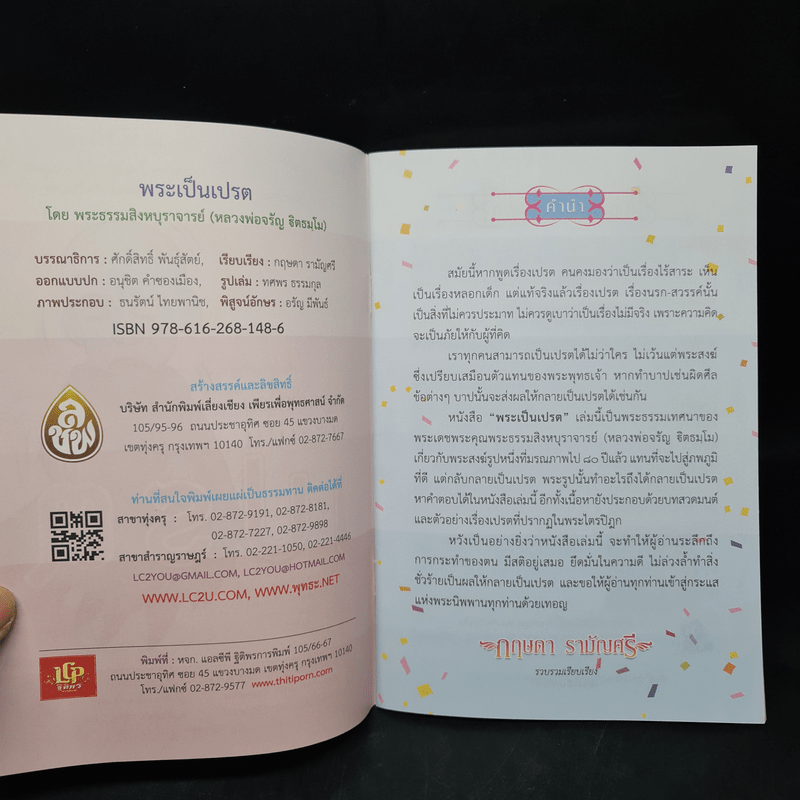 พระเป็นเปรต
โดย พระธรรมสิงหบุราจารย์ (หลวงพ่อจรัญ ฐิตธมฺโม)
บรรณาธิการ : ศักดิ์สิทธิ์ พันธุ์สัตย์, เรียบเรียง : กฤษดา รามัญศรี
ออกแบบปก : อนุชิต คำซองเมือง, รูปเล่ม : ทศพร ธรรมกุล
ภาพประกอบ : ธนรัตน์ ไทยพานิช, พิสูจน์อักษร : อรัญ มีพันธ์
ISBN 978-616-268-148-6
สร้างสรรค์และลิขสิทธิ์
บริษัท สำนักพิมพ์เลี่ยงเชียง เพียรเพื่อพุทธศาสน์ จำกัด
105/95-96 ถนนประชาอุทิศ ซอย 45 แขวงบางมด
เขตทุ่งครุ กรุงเทพฯ 10140 โทร./แฟกซ์ 02-872-7667
ท่านที่สนใจพิมพ์เผยแผ่เป็นธรรมทาน ติดต่อได้ที่
สาขาทุ่งครุ : โทร. 02-872-9191, 02-872-8181,
02-872-7227, 02-872-9898
สาขาสำราญราษฎร์ : โทร. 02-221-1050, 02-221-4446
LC2YOU@GMAIL.COM, LC2YOU@HOTMAIL.COM
WWW.LC2U.COM, WWW.พุทธะ.NET
LCP
ฐิติพร
พิมพ์ที่ : หจก. แอลซีพี ฐิติพรการพิมพ์ 105/66-67
ถนนประชาอุทิศ ซอย 45 แขวงบางมด เขตทุ่งครุ กรุงเทพฯ 10140
โทร./แฟกซ์ 02-872-9577 www.thitiporn.com
คำนำ
สมัยนี้หากพูดเรื่องเปรต คนคงมองว่าเป็นเรื่องไร้สาระ เห็น
เป็นเรื่องหลอกเด็ก แต่แท้จริงแล้วเรื่องเปรต เรื่องนรก-สวรรค์นั้น
เป็นสิ่งที่ไม่ควรประมาท ไม่ควรดูเบาว่าเป็นเรื่องไม่มีจริง เพราะความคิด
จะเป็นภัยให้กับผู้ที่คิด
เราทุกคนสามารถเป็นเปรตได้ไม่ว่าใคร ไม่เว้นแต่พระสงฆ์
ซึ่งเปรียบเสมือนตัวแทนของพระพุทธเจ้า หากทำบาปเช่นผิดศีล
ข้อต่างๆ บาปนั้นจะส่งผลให้กลายเป็นเปรตได้เช่นกัน
หนังสือ “พระเป็นเปรต” เล่มนี้เป็นพระธรรมเทศนาของ
พระเดชพระคุณพระธรรมสิงหบุราจารย์ (หลวงพ่อจรัญ ฐิตธมฺโม)
เกี่ยวกับพระสงฆ์รูปหนึ่งที่มรณภาพไป ๘๐ ปีแล้ว แทนที่จะไปสู่ภพภูมิ
ที่ดี แต่กลับกลายเป็นเปรต พระรูปนั้นทำอะไรถึงได้กลายเป็นเปรต
หาคำตอบได้ในหนังสือเล่มนี้ อีกทั้งเนื้อหายังประกอบด้วยบทสวดมนต์
และตัวอย่างเรื่องเปรตที่ปรากฏในพระไตรปิฎก
หวังเป็นอย่างยิ่งว่าหนังสือเล่มนี้ จะทำให้ผู้อ่านระลึกถึง
การกระทำของตน มีสติอยู่เสมอ ยึดมั่นในความดี ไม่ล่วงล้ำทำสิ่ง
ชั่วร้ายเป็นผลให้กลายเป็นเปรต และขอให้ผู้อ่านทุกท่านเข้าสู่กระแส
แห่งพระนิพพานทุกท่านด้วยเทอญ
กฤษดา รามัญศรี
รวบรวมเรียบเรียง